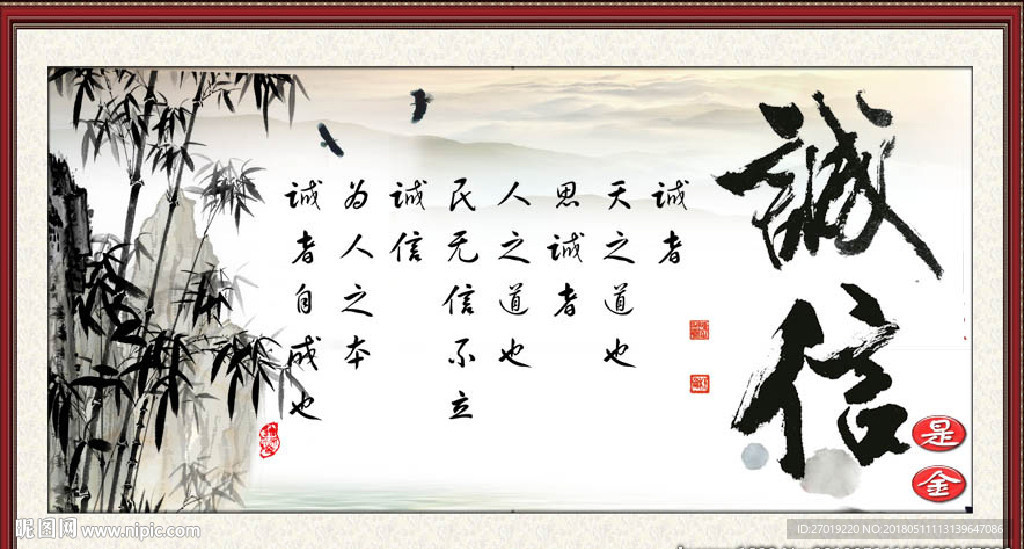 誠信
是
金
诚者
天之道也
思诚者
人之道也
民无信不立
诚信
为人之本
诚者自成也
昵图网 www.nipic.com
ID:27019220 NO:20180511113139647086